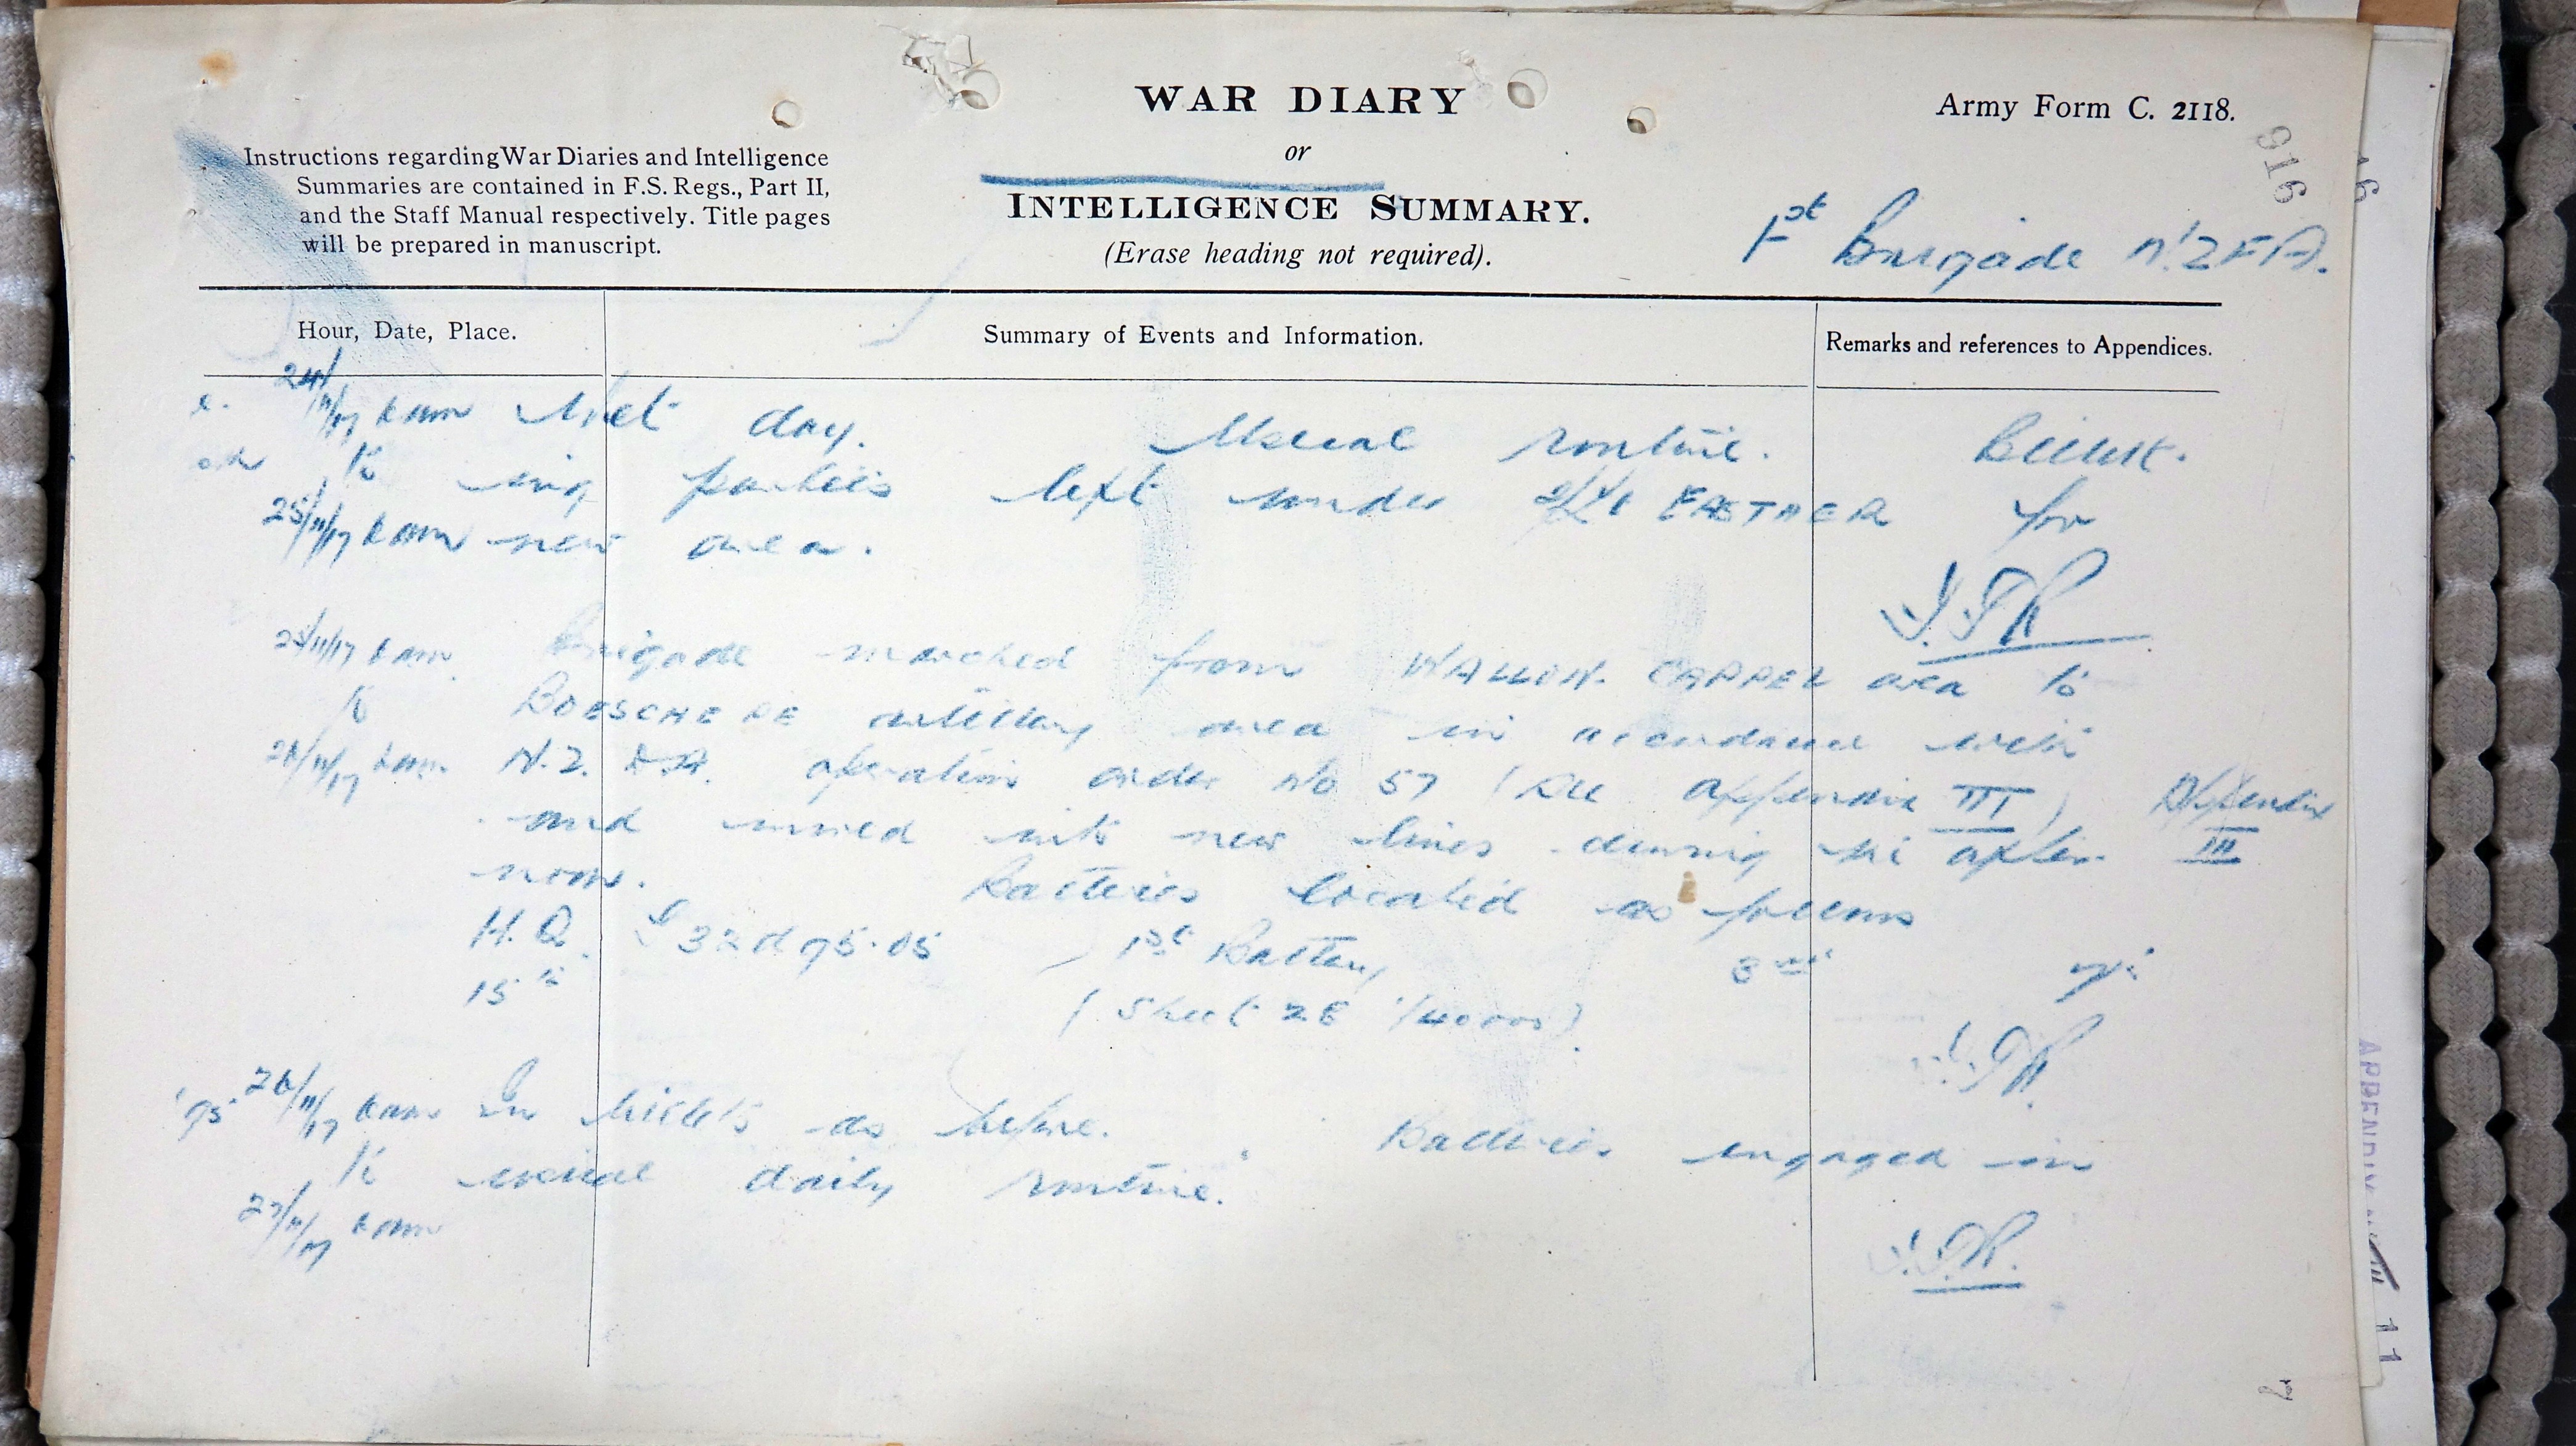 WAR DIARY
or
INTELLIGENCE SUMMARY.
(Erase heading not required).
Army Form C. 2118.
916
Instructions regarding War Diaries and Intelligence
Summaries are contained in F.S. Regs., Part II,
and the Staff Manual respectively. Title pages
will be prepared in manuscript.
1st Brigade N.Z.F.A.
Hour, Date, Place.
Summary of Events and Information.
Remarks and references to Appendices.
24/11/17 6 am Wet day. Usual routine. Billet-
to ing parties left under 2/Lt for
25/11/17 6 am new area.
25/11/17 6 am Brigade marched from WALLON. CAPPEL area to
to BOESCHEPE artillery area in accordance with
26/11/17 6 am N.Z. D.A. operation order No 57 (See appendix III) Appendix
and moved into new lines during the after- III
noon. Batteries located as follows
H.Q. 32d 95.05 1st Battery 3rd 7th
15th (Sheet 28 1/40000)
26/11/17 6 am In billets as before. Batteries engaged in
to usual daily routine.
27/11/17 6 am
7
APPENDIX
11